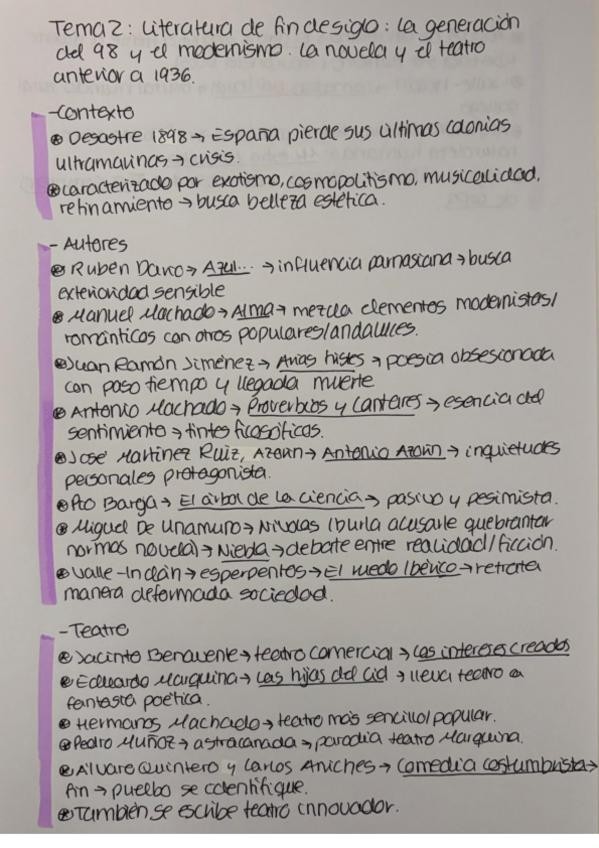 Tema 2: Literatura de fin de siglo: la generación
del 98 y el modernismo. La novela y el teatro
anterior a 1936.
- Contexto
⊛ Desastre 1898 → España pierde sus últimas colonias
ultramarinas → crisis.
⊛ caracterizado por exotismo, cosmopolitismo, musicalidad,
refinamiento → busca belleza estética.
- Autores
⊛ Rubén Darío → Azul... → influencia parnasiana → busca
exterioridad sensible
⊛ Manuel Machado → Alma → mezcla elementos modernistas/
románticos con otros populares/andaluces.
⊛ Juan Ramón Jiménez → Arias tristes → poesía obsesionada
con paso tiempo y llegada muerte
⊛ Antonio Machado → Proverbios y Cantares → esencia del
sentimiento → tintes filosóficos.
⊛ José Martínez Ruiz, Azorín → Antonio Azorín → inquietudes
personales protagonista.
⊛ Pío Baroja → El árbol de la ciencia → pasivo y pesimista.
⊛ Miguel De Unamuno → Nivolas (burla acusarle quebrantar
normas novela) → Niebla → debate entre realidad/ficción.
⊛ Valle-Inclán → esperpentos → El ruedo Ibérico → retrata
manera deformada sociedad.
- Teatro
⊛ Jacinto Benavente → teatro comercial → Los intereses creados
⊛ Eduardo Marquina → Las hijas del Cid → lleva teatro a
fantasía poética.
⊛ Hermanos Machado → teatro más sencillo/popular.
⊛ Pedro Muñoz → astracanada → parodia teatro Marquina.
⊛ Álvaro Quintero y Carlos Arniches → Comedia costumbrista →
fin → pueblo se identifique.
⊛ También se escribe teatro innovador.